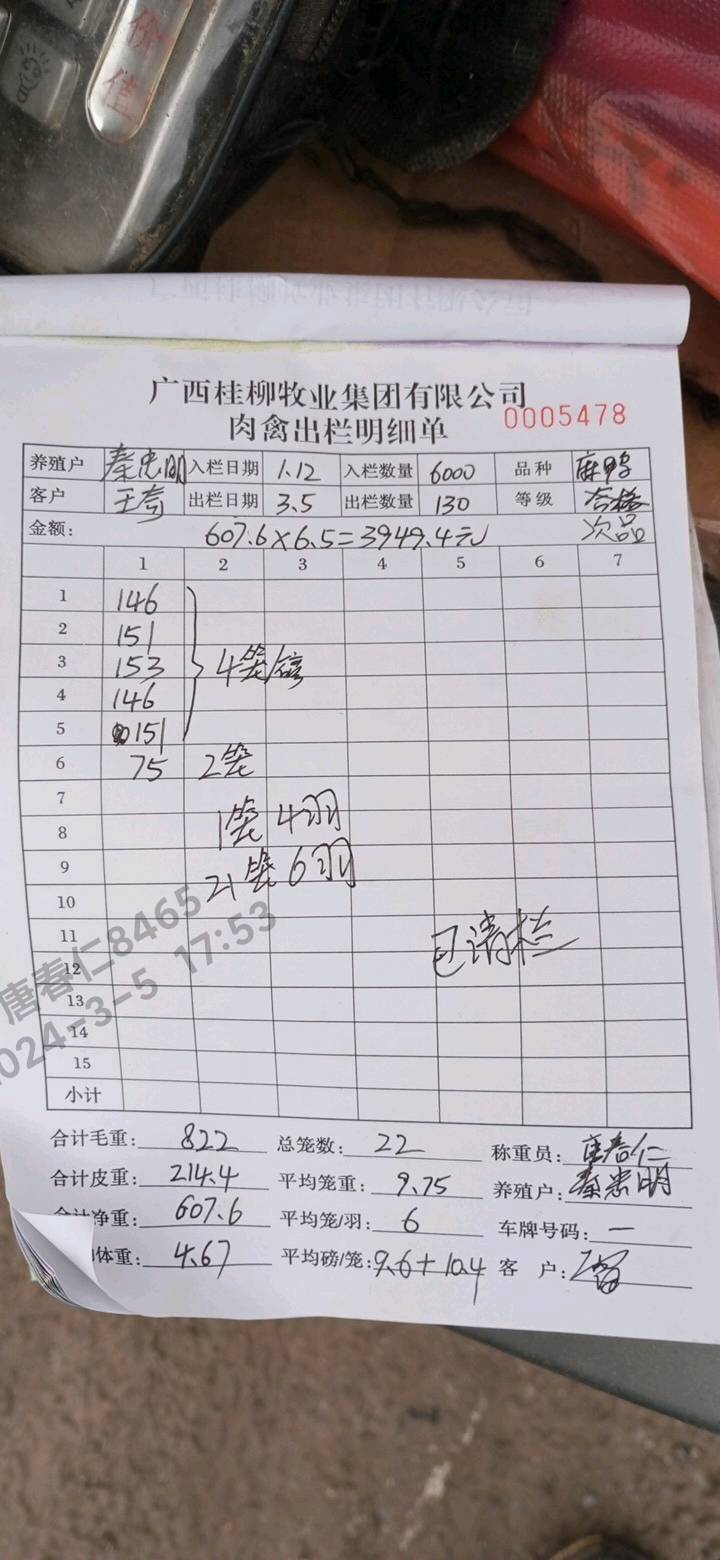 价值
广西桂柳牧业集团有限公司
肉禽出栏明细单 0005478
养殖户 秦忠明 入栏日期 1.12 入栏数量 6000 品种 麻鸭
客户 出栏日期 3.5 出栏数量 130 等级 合格
金额: 607.6×6.5=3949.4元 次品
1 2 3 4 5 6 7
1 146
2 151
3 153 4笼/磅
4 146
5 151
6 75 2笼
7
8 1笼4羽
9 21笼6羽
10
11 已清栏
12
13
14
15
小计
合计毛重: 822 总笼数: 22 称重员: 唐春仁
合计皮重: 214.4 平均笼重: 9.75 养殖户: 秦忠明
合计净重: 607.6 平均笼/羽: 6 车牌号码: 一
体重: 4.67 平均磅/笼: 9.6+10.4 客 户:
唐春仁8465
024-3-5 17:53